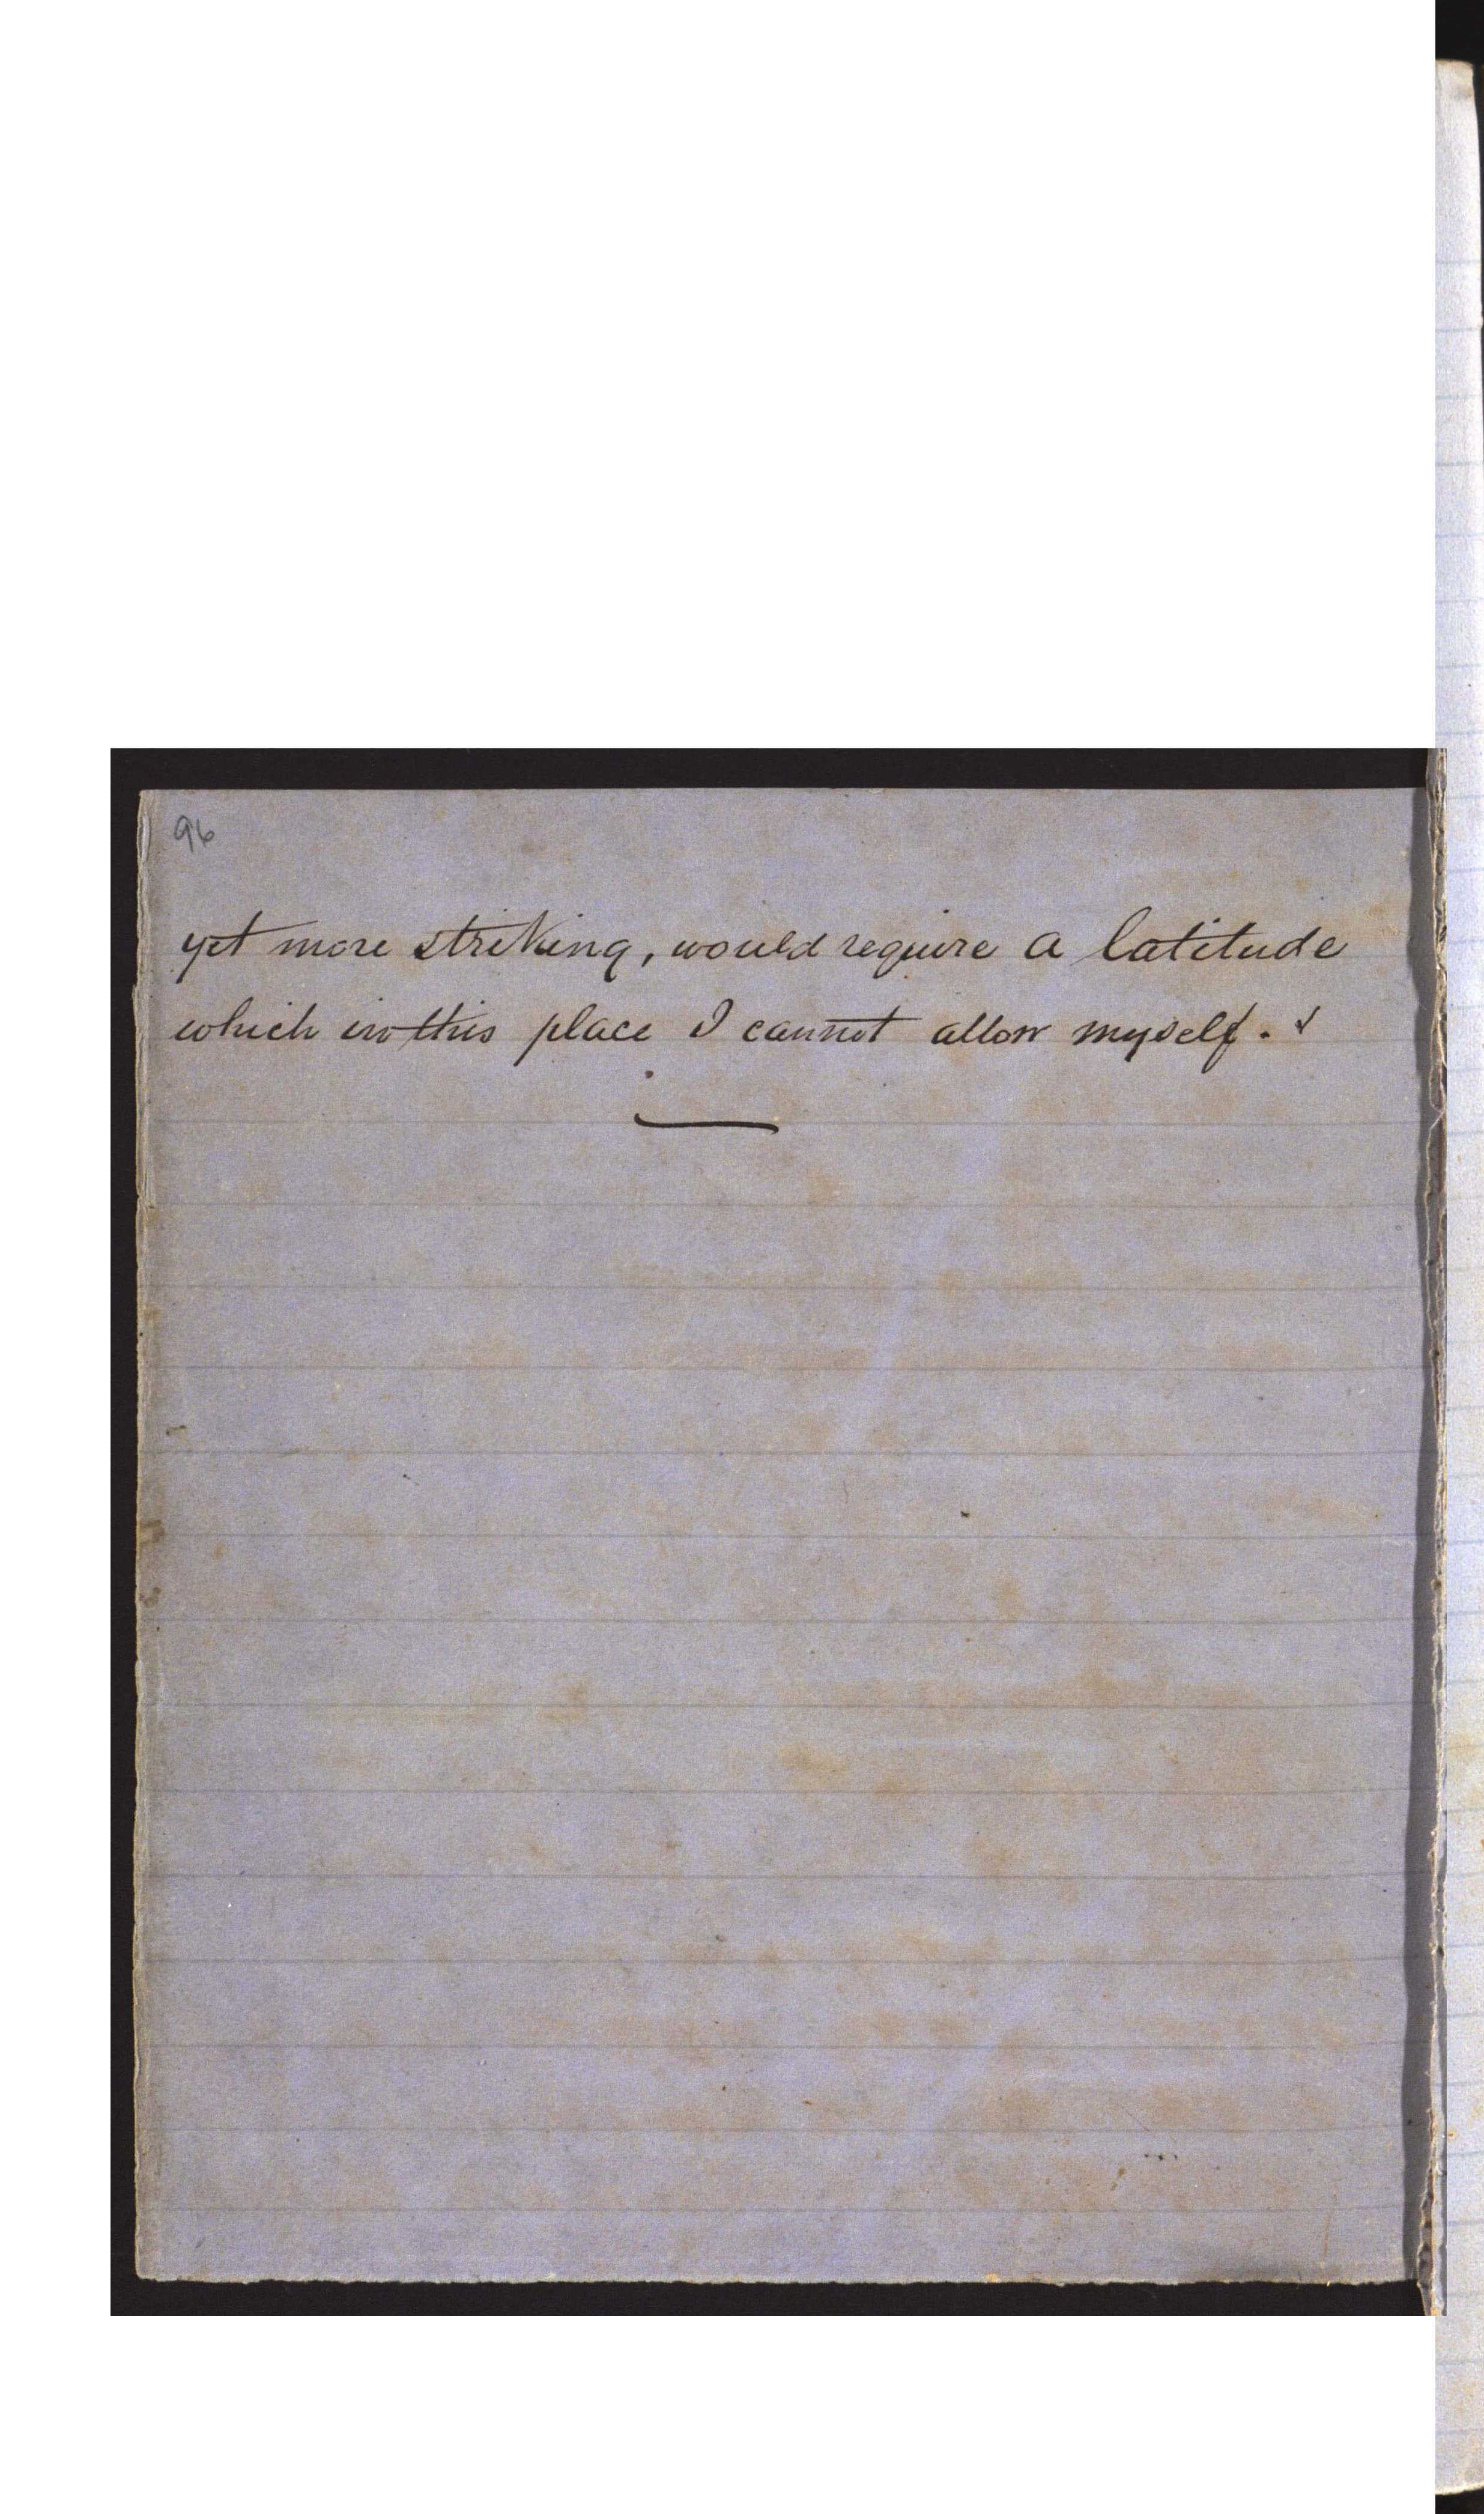 96
yet more striking, would require a latitude
which in this place I cannot allow myself.